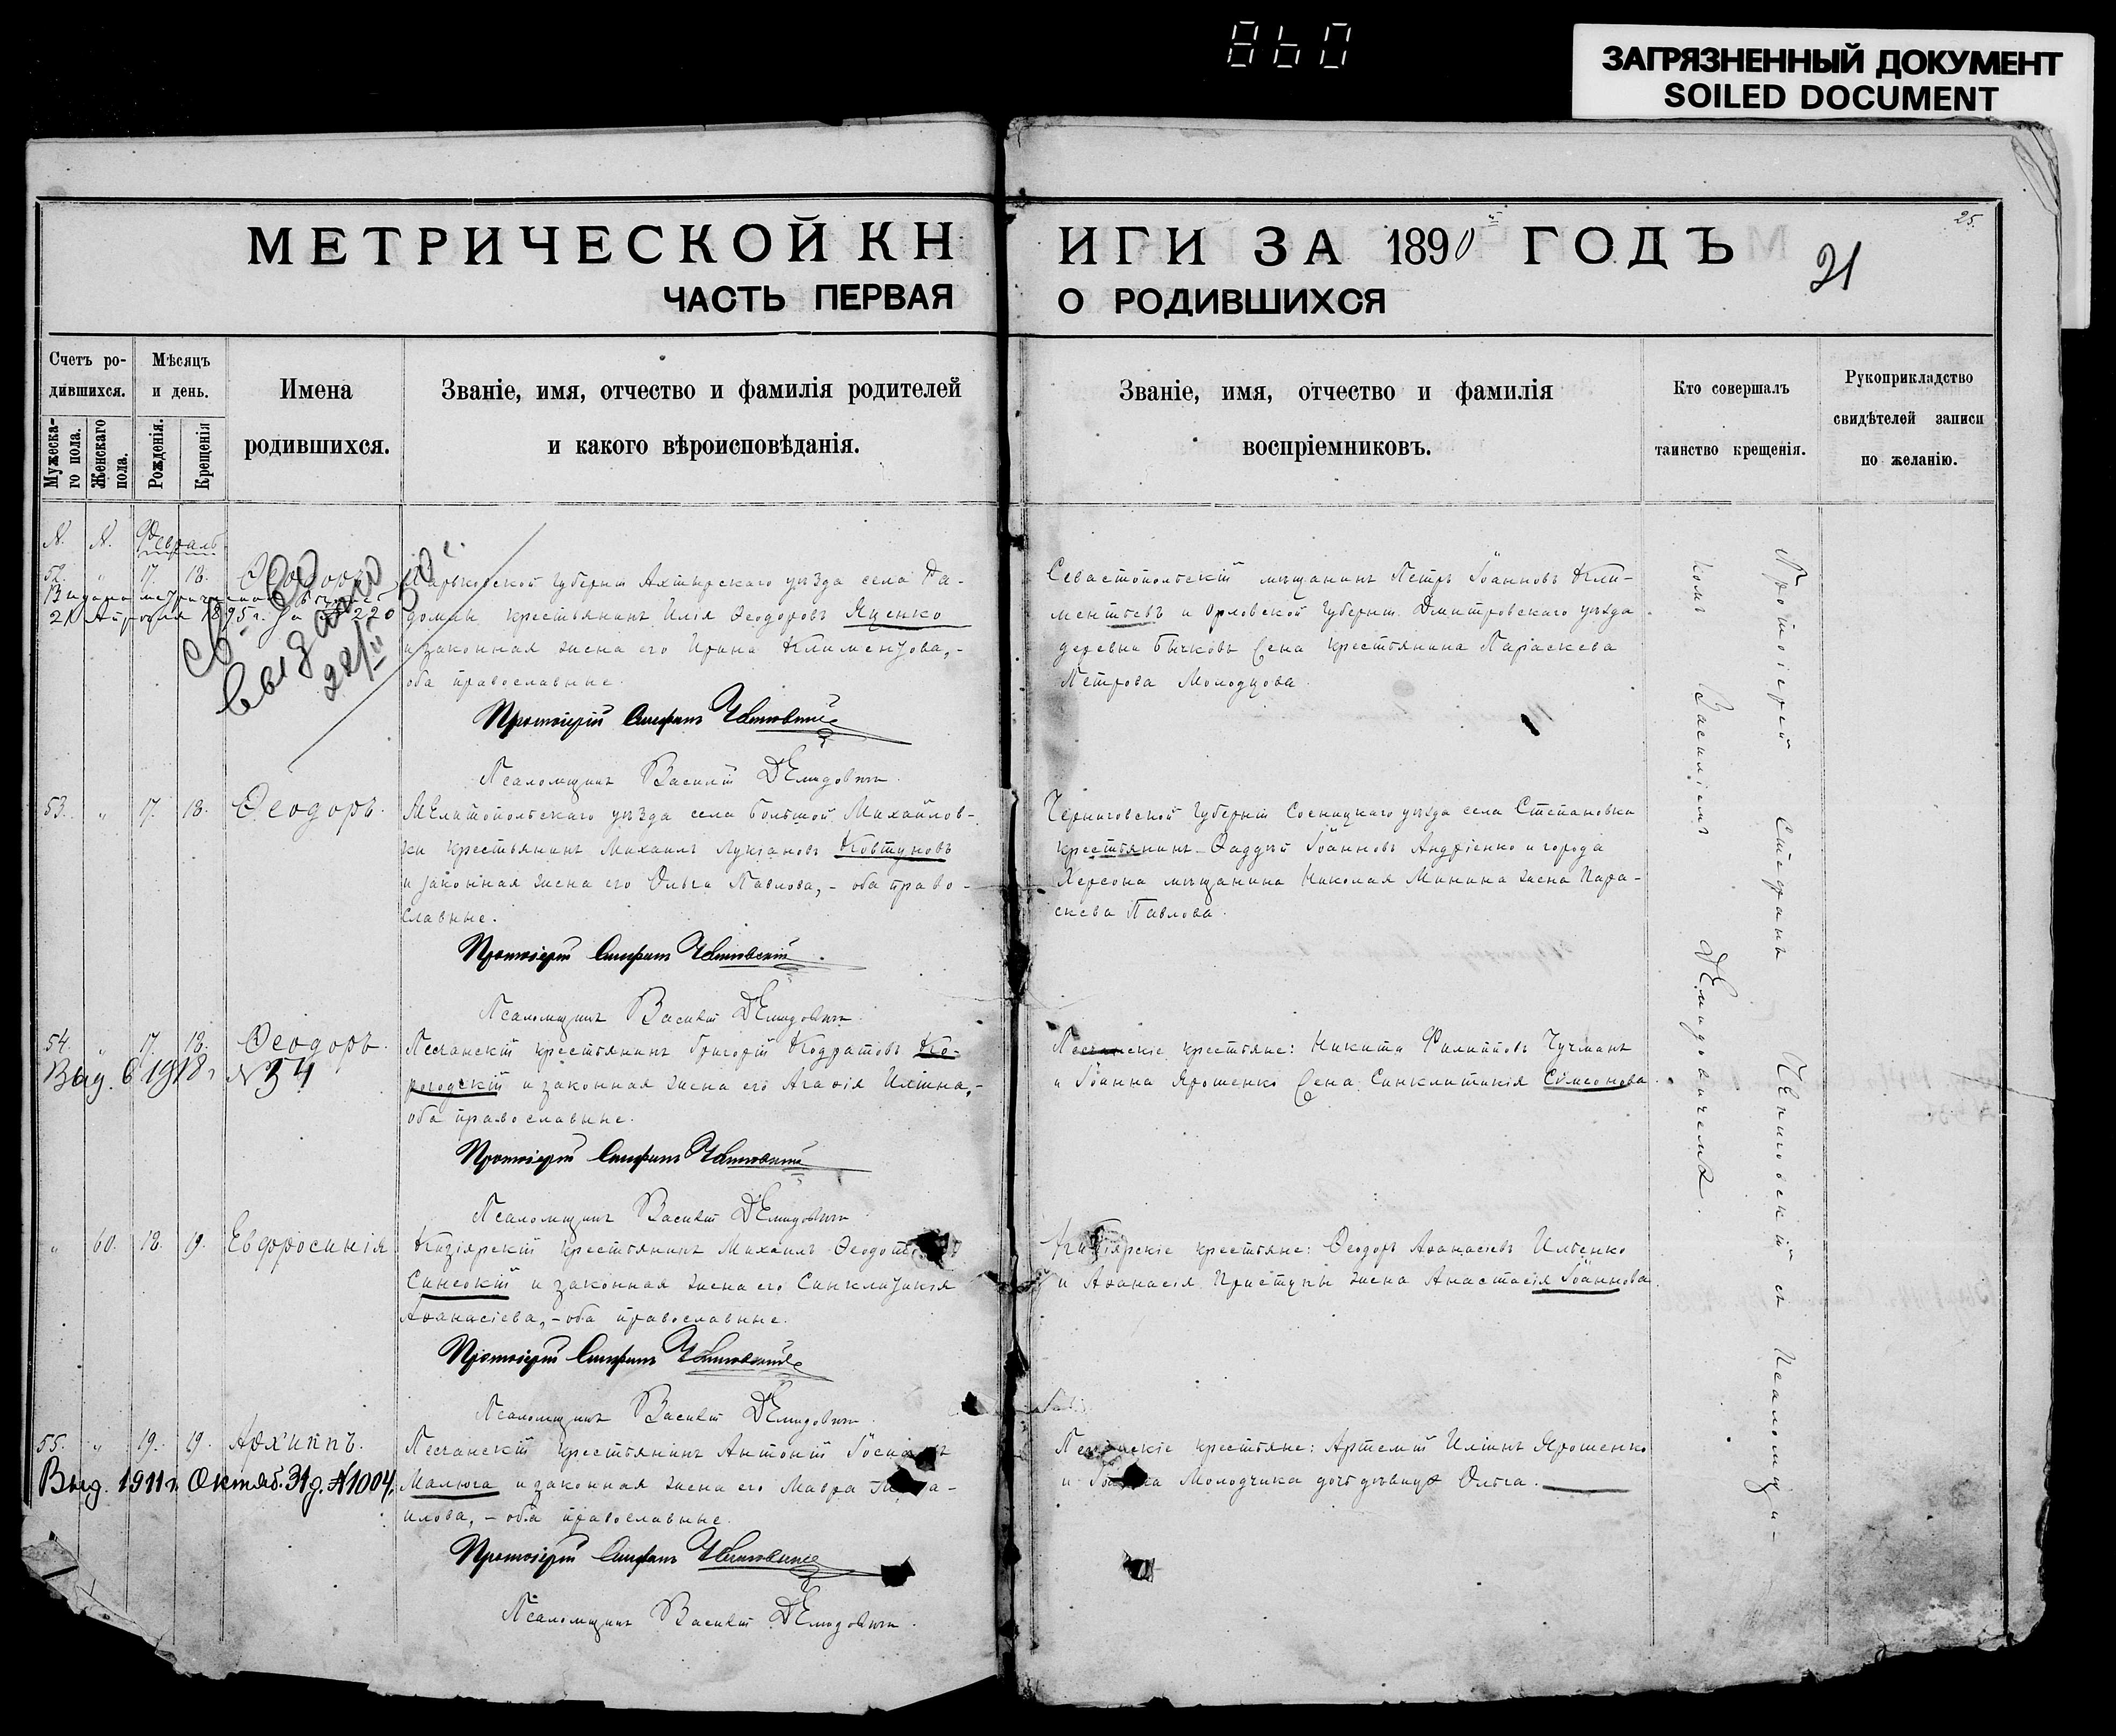 860
ЗАГРЯЗНЕННЫЙ ДОКУМЕНТ
SOILED DOCUMENT
25.
МЕТРИЧЕСКОЙ КН
ИГИ ЗА 1890 ГОДЪ
21
ЧАСТЬ ПЕРВАЯ
О РОДИВШИХСЯ
Счетъ ро-
дившихся.
Мужеска-
го пола.
Женскаго
пола.
Мѣсяцъ
и день.
Рожденія.
Крещенія
Имена
родившихся.
Званіе, имя, отчество и фамилія родителей
и какого вѣроисповѣданія.
Званіе, имя, отчество и фамилія
воспріемниковъ.
Кто совершалъ
таинство крещенія.
Рукоприкладство
свидѣтелей записи
по желанію.
N. N. Февраль
52. " 17. 18. Ѳеодоръ
Харьковской губерніи Ахтырскаго уѣзда села
крестьянинъ Илія Ѳеодоровъ Яценко
и законная жена его Ирина Климентова, -
оба православные.
21 Апрѣля 1895 г. за № 220
выдано
Протоіерей Стефанъ
Псаломщикъ Василій Демидовичъ.
Севастопольскій мѣщанинъ Петръ Іоанновъ Кли-
ментьевъ и Орловской губерніи Дмитровскаго уѣзда
деревни Бычковъ жена крестьянина Параскева
Петрова Молодцова.
53. " 17. 18. Ѳеодоръ.
Мелитопольскаго уѣзда села Большой Михайлов-
ки крестьянинъ Михаилъ Лукіановъ Ковтуновъ
и законная жена его Ольга Павлова, - оба право-
славные.
Протоіерей Стефанъ
Псаломщикъ Василій Демидовичъ.
Черниговской губерніи Сосницкаго уѣзда села Степановки
крестьянинъ Ѳаддей Іоанновъ Андріенко и города
Херсона мѣщанина Николая Минина жена Пара-
скева Павлова.
54. " 17. 18. Ѳеодоръ.
Выд. 1918 г. № 34
Песчанскій крестьянинъ Григорій Кодратовъ Ко-
рогодскій и законная жена его Агаѳія Иліина, -
оба православные.
Протоіерей Стефанъ
Псаломщикъ Василій Демидовичъ
Песчанскіе крестьяне: Никита Филипповъ Чучманъ
и Іоанна Ярошенко жена Синклитикія Симеонова.
" 60. 18. 19. Евфросинія
Кизіярскій крестьянинъ Михаилъ
Синеокій и законная жена его Синклитикія
Аѳанасіева, - оба православные.
Протоіерей Стефанъ
Псаломщикъ Василій Демидовичъ.
Кизіярскіе крестьяне: Ѳеодоръ Аѳанасіевъ Ильенко
и Аѳанасія Приступы жена Анастасія Іоаннова.
55. " 19. 19. Архиппъ.
Выд. 1911 г. Октяб. 31 д. № 1004.
Песчанскій крестьянинъ Антоній
Малюга и законная жена его Мавра
илова, - оба православные.
Протоіерей Стефанъ
Псаломщикъ Василій Демидовичъ.
Песчанскіе крестьяне: Артемій Иліинъ Ярошенко
и Молодчика дочь дѣвица Ольга.
Протоіерей Стефанъ съ Псаломщи-
комъ Василіемъ Демидовичемъ.